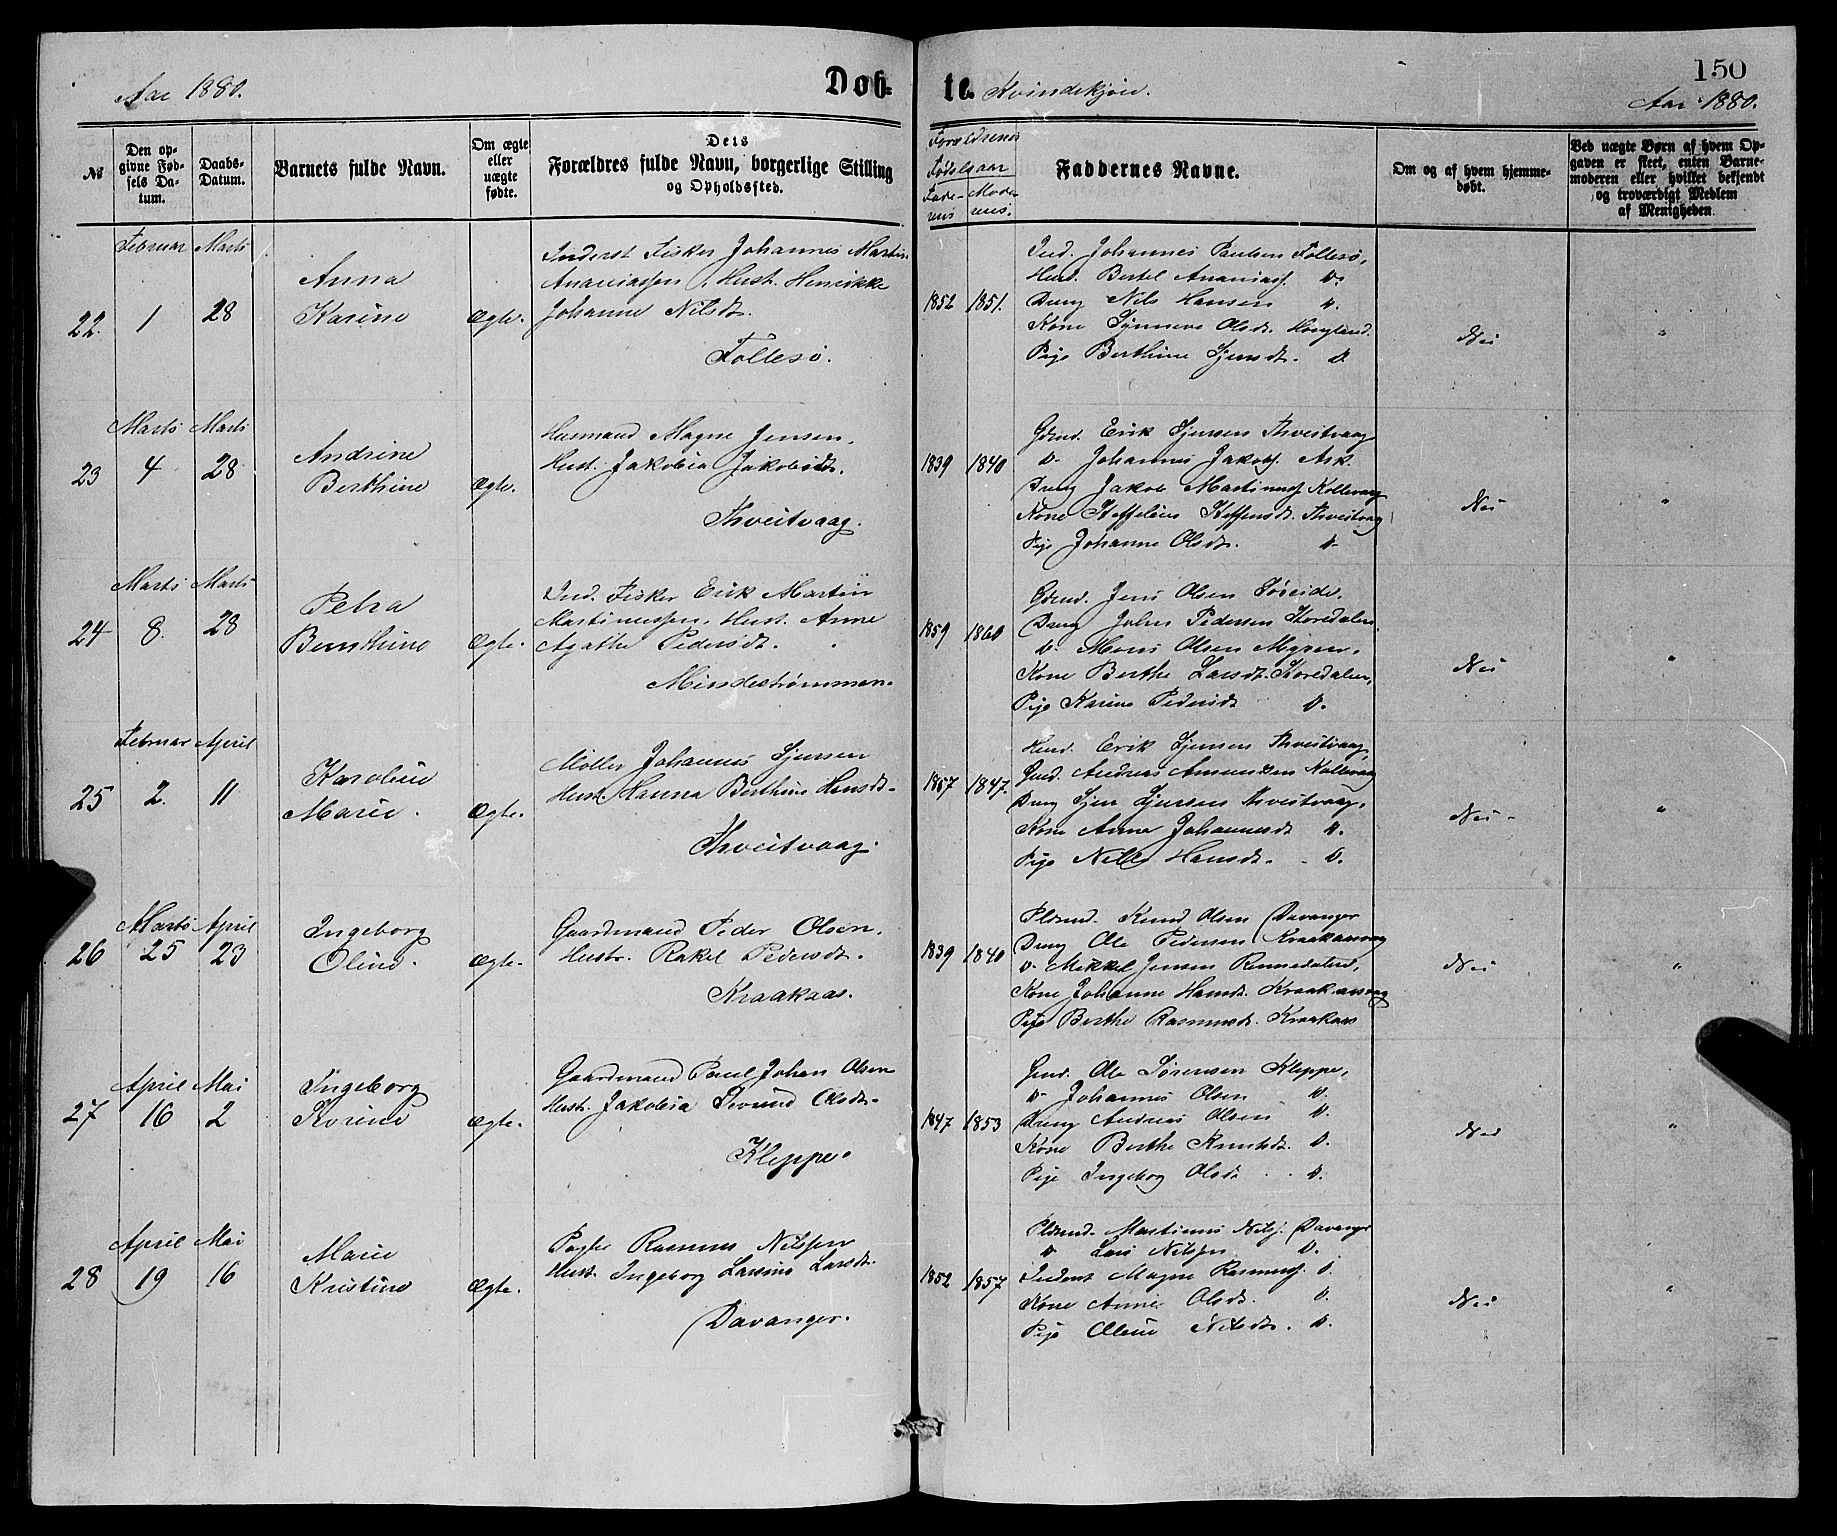 Aar 1880.
Døb=
te.
Kvindekjøn.
150
Aar 1880.
№
Den op-
givne Fød-
sels Da-
tum.
Daabs-
Datum.
Barnets fulde Navn.
Om ægte
eller
uægte
fødte.
Dets
Forældres fulde Navn, borgerlige Stilling
og Opholdssted.
Forældrenes
Fødselsaar
Fade-
rens
Mode-
rens.
Faddernes Navne.
Om og af hvem hjemme-
døbt.
Ved uægte Børn af hvem Op-
gaven er skeet, enten Barne-
moderen eller hvilket bekjendt
og troværdigt Medlem
af Menigheden.
22. Februar 1 Marts 28
Anna
Karine
Ægte.
Inderst Fisker Johannes Martin
Ananiassen, Hust. Henrikke
Johanne Nilsdt.
Follesø.
1852 1851.
Ind. Johannes Paulsen Follesø,
Husd. Bertel Ananiass. D.
Dreng Nils Hansen D.
Kone Synneve Olsdt. Hougland.
Pige Berthine Sjursdt. D.
Nei
"
23 Marts 4 Marts 28
Andrine
Berthine
Ægte.
Husmand Magne Jensen,
Hust. Jakobia Jakobsdt.
Thveitvaag.
1839 1840
Gdmd. Erik Sjursen Thveitvaag
D. Johannes Jakobs. Ask.
Dreng Jakob Martinuss. Kollevaag
Kone Steffeline Steffensdt. Thveitvaag
Pige Johanne Olsdt. D.
Nei
"
24 Marts 8. Marts 28
Petra
Bernthine
Ægte.
Ind. Fisker Erik Martin
Martinussen, Hust. Anne
Agathe Pedersdt.
Mindestrømmen.
1859 1860
Gdmd. Jens Olsen Søreide,
Dreng Johs Pedersen Storedalen
D. Mons Olsen
Kone Berthe Larsdt. Storedalen,
Pige Karine Pedersdt D.
Nei
"
25 Februar 2. April 11
Karoline
Marie.
Ægte.
Møller Johannes Sjursen
Hust. Hanna Berthine Hansdt.
Thveitvaag.
1857 1847.
Husd. Erik Sjursen Thveitvaag,
Gmd. Andreas Amundsen Kollevaag
Dreng Sjur Sjursen Thveitvaag,
Kone Anna Johannesdt D.
Pige Nille Hansdt. D.
Nei
"
26 Marts 25 April 23
Ingeborg
Oline.
Ægte.
Gaardmand Peder Olsen,
Hustr. Rakel Pedersdt.
Kraakaas.
1839 1840
Pldsmd. Knud Olsen Davanger
Dreng Ole Pedersen Kraakaasvaag
D. Mikkel Jensen
Kone Johanne Hansdt. Kraakaasvaag
Pige Berthe Rasmusdt. Kraakaas
Nei
"
27 April 16 Mai 2
Ingeborg
Korine
Ægte.
Gaardmand Paul Johan Olsen
Hust. Jakobia Olsdt.
Kleppe.
1847 1853
Gmd. Ole Sørensen Kleppe,
D. Johannes Olsen D.
Dreng Andreas Olsen D.
Kone Berthe Knutsdt. D.
Pige Ingeborg Olsdt D.
Nei
"
28 April 19 Mai 16
Marie
Kristine
Ægte.
Rasmus Nilssen
Hust. Ingeborg Larsine Larsdt.
Davanger.
1852 1857
Pldsmd. Martinus Nilss. Davanger
D. Lars Nilssen D.
Inderst Magne Rasmuss. D.
Kone Anne Olsdt. D.
Pige Oline Nilsdt. D.
Nei
"